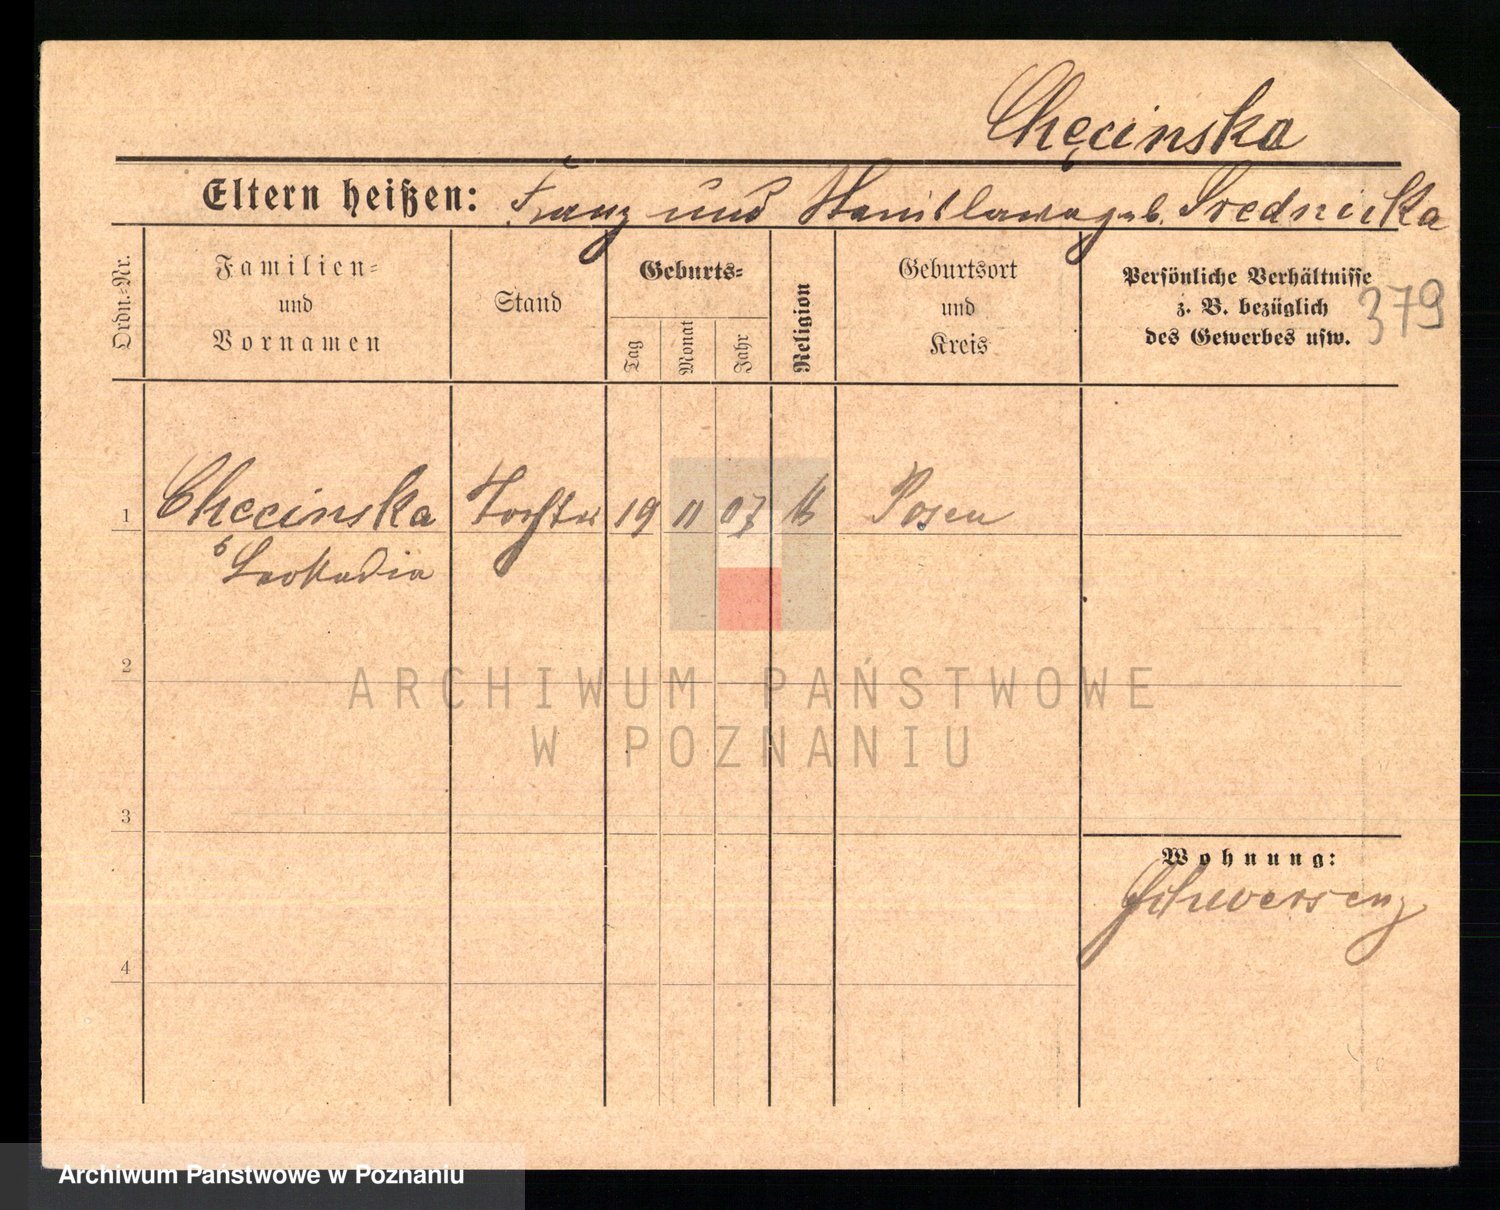 Chęcinska
Eltern heißen: Franz und Stanislawa geb. Srednicka
Ordn.-Nr.
Familien-
und
Vornamen
Stand
Geburts-
Tag
Monat
Jahr
Religion
Geburtsort
und
Kreis
Persönliche Verhältnisse
z. B. bezüglich
des Gewerbes usw.
379
1 Chęcinska Tochter 19 11 07 Posen
Leokadia
2
3
4
Wohnung:
Schwersenz
ARCHIWUM PAŃSTWOWE
W POZNANIU
Archiwum Państwowe w Poznaniu